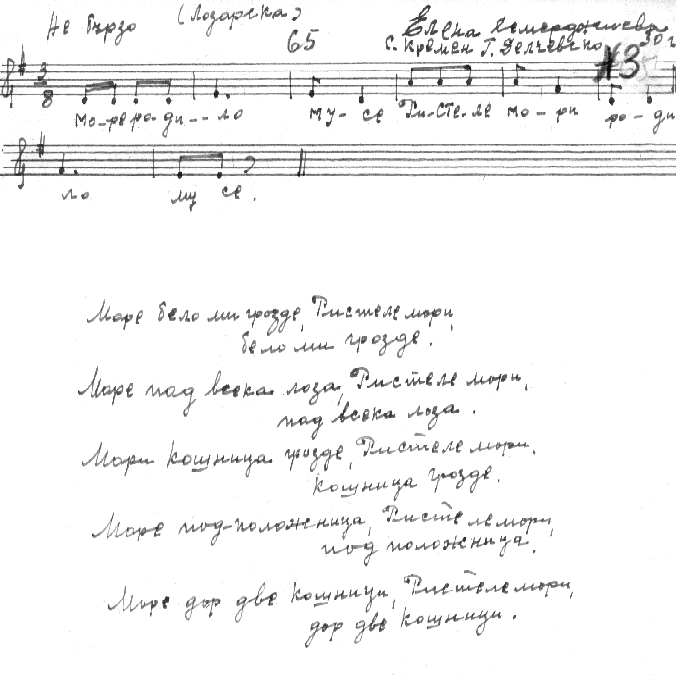 Не бързо (Лозарска) Елена
65 с. Кремен Г. Делчевско 30 г
#3
3
8
мо-ре ро-ди--ло му-се Ристе-ле мо-ри ро-ди
ло му се.
Море бело ми грозде, Ристеле мори,
бело ми грозде.
Море под всека лоза, Ристеле мори,
под всека лоза.
Мори кошница грозде, Ристеле мори,
кошница грозде.
Море под-положница, Ристе ле мори,
под положница.
Море дор две кошници, Ристеле мори,
дор две кошници.